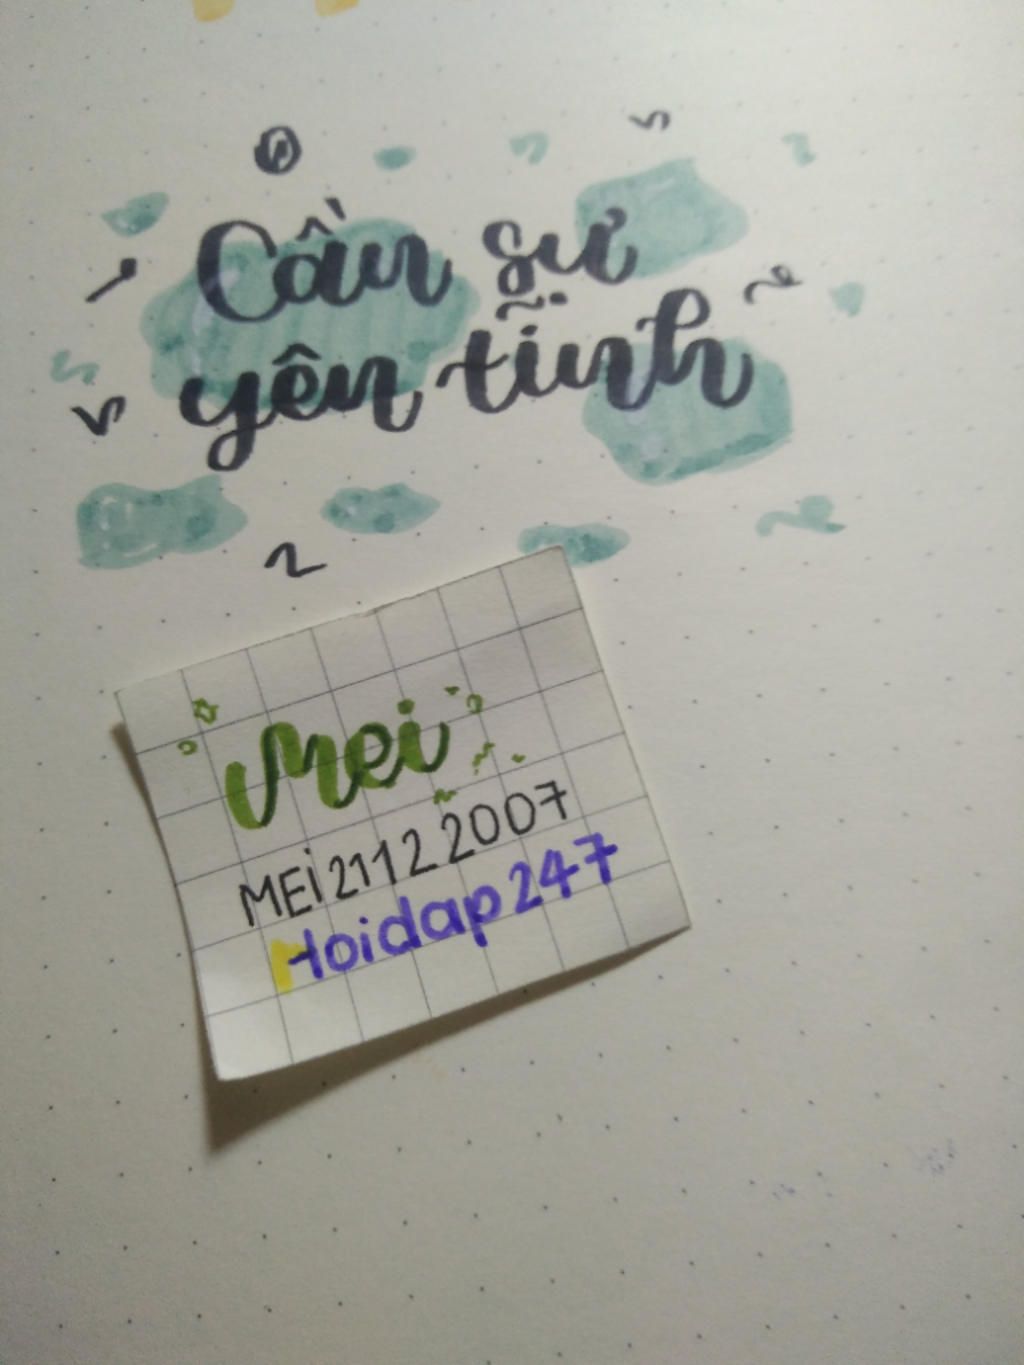 Cần sự
yên tĩnh
Mei
MEi 2112 2007
Hoidap247